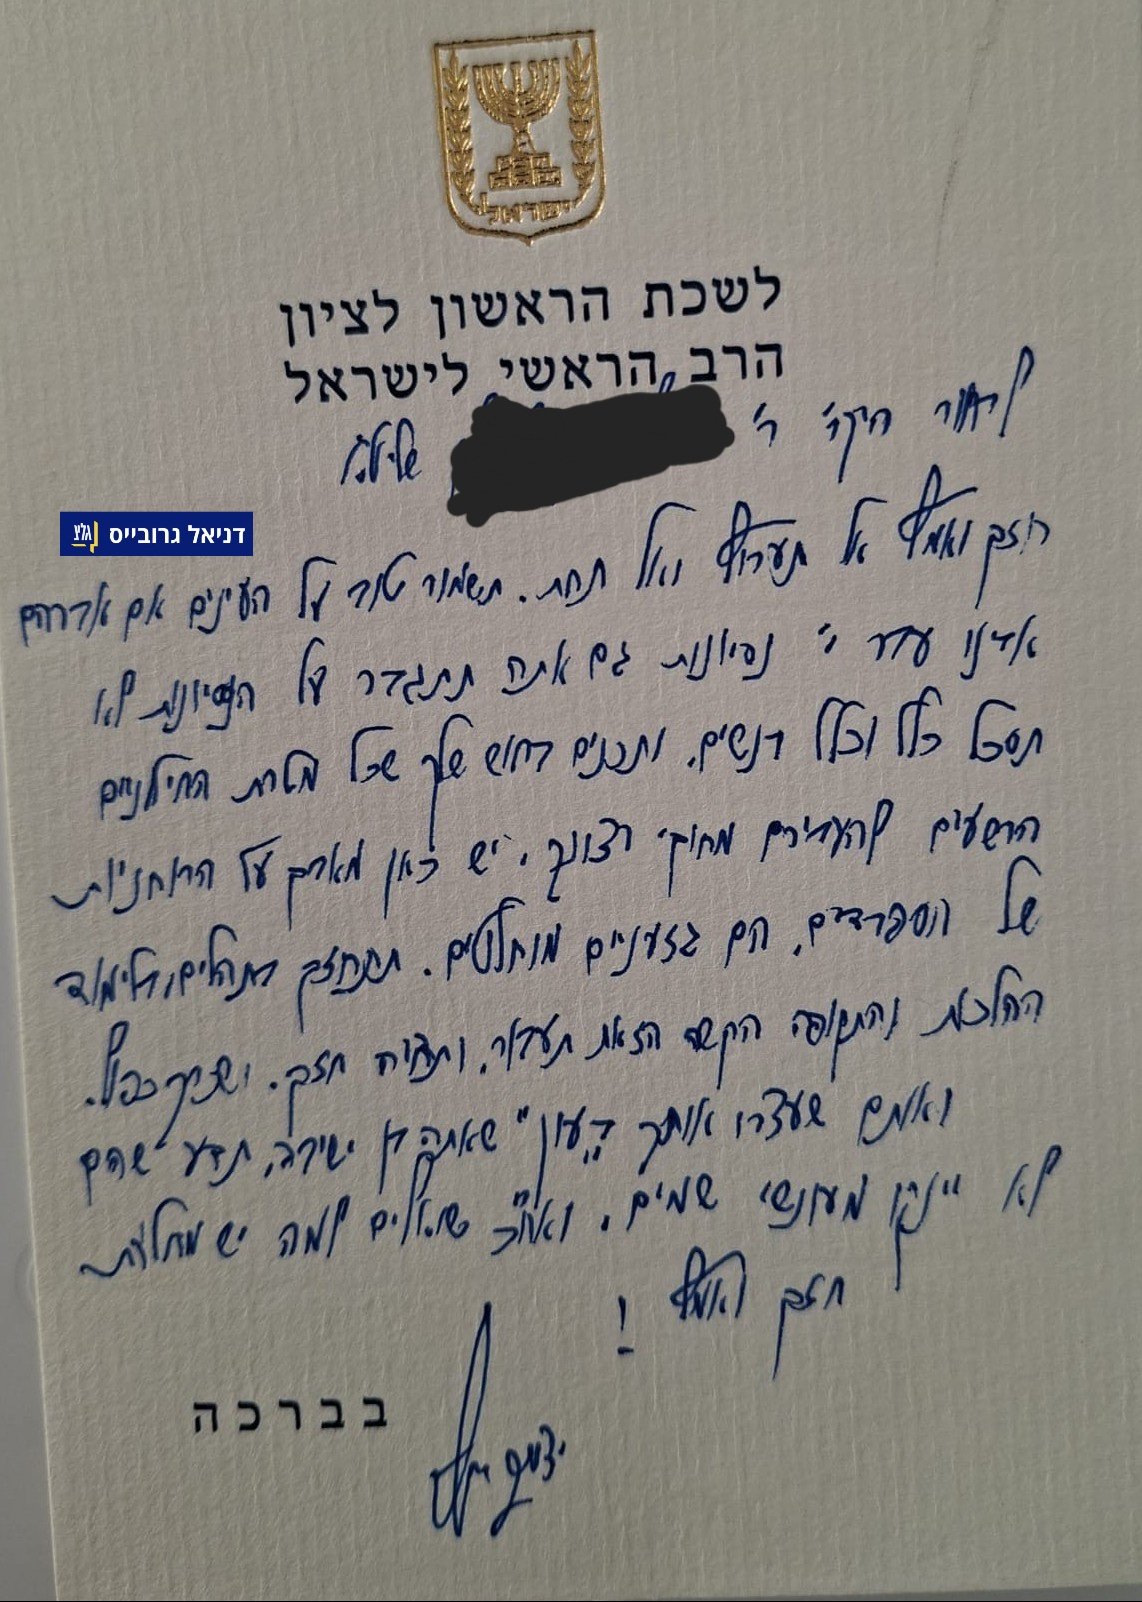 ישראל
לשכת הראשון לציון
הרב הראשי לישראל
לבחור היקר ר' שליט"א
דניאל גרובייס גלצ
חזק ואמץ אל תערוץ ואל תחת. תשמור טוב על העינים אם אברהם
אבינו עבר י' נסיונות גם אתה תתגבר על הנסיונות לא
תסתכל כלל וכלל בנשים. ותכנים בראש שלך שכל מטרת החילוניים
הרשעים להעבירם מחוקי רצונך. יש כאן מאבק על הרוחניות
של הספרדים, הם גזעניים מוחלטים. תתחזק בתהלים, בלימוד
ההלכות והתקופה הקשה הזאת תעבור, ותהיה חזק. ושכרך כפול.
ואותם שעצרו אותך ב"עון" שאתה בן ישיבה, תדע שהם
לא ינקו מעונשי שמים. ואח"כ שואלים למה יש מחלות
חזק ואמץ !
בברכה
יצחק יוסף